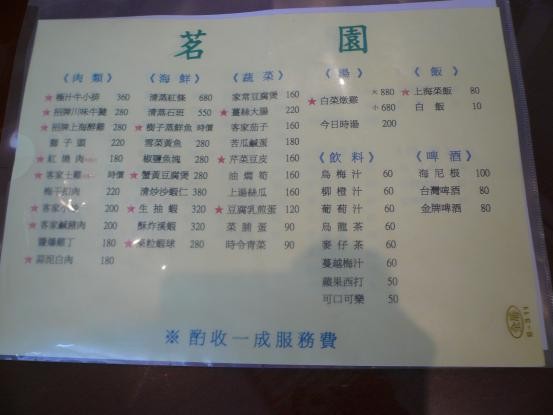 茗園
《肉類》
★ 極汁牛小排 360
★ 招牌川味牛腱 280
★ 招牌上海醉雞 280
獅子頭 220
★ 紅燒肉 180
★ 客家土雞
梅干扣肉 220
★ 客家小炒 200
★ 客家鹹豬肉 200
醬爆雞丁 180
★ 蒜泥白肉 180
《海鮮》
清蒸紅條 680
清蒸石班 550
★ 樹子蒸鮮魚 時價
雪菜黃魚 280
椒鹽魚塊 280
★ 蟹黃豆腐煲 280
清炒沙蝦仁 380
★ 生抽蝦 320
酥炸溪蝦 320
★ 果粒蝦球 280
《蔬菜》
家常豆腐煲 160
★ 薑絲大腸 220
客家茄子 160
苦瓜鹹蛋 180
★ 芹菜豆皮 160
油燜筍 160
上湯絲瓜 160
★ 豆腐乳煎蛋 120
菜脯蛋 90
時令青菜 90
《湯》
★ 白菜燉雞 大 880
小 680
今日時湯 200
《飯》
★ 上海菜飯 80
白飯 10
《飲料》
烏梅汁 60
柳橙汁 60
葡萄汁 60
烏龍茶 60
麥仔茶 60
蔓越梅汁 60
蘋果西打 50
可口可樂 50
《啤酒》
海尼根 100
台灣啤酒 80
金牌啤酒 80
※ 酌收一成服務費